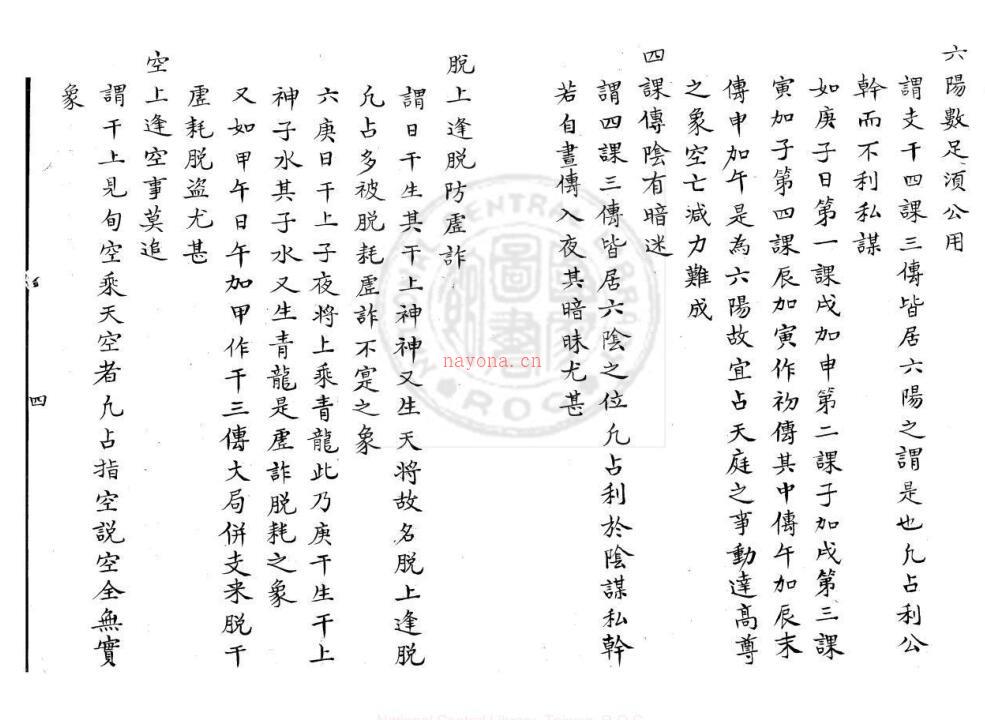 六陽數足湏公用
謂支干四課三傳皆居六陽之謂是也凢占利公
幹而不利私謀
如庚子日第一課戌加申第二課子加戌第三課
寅加子第四課辰加寅作初傳其中傳午加辰末
傳申加午是為六陽故宜占天庭之事動達高尊
之象空亡減力難成
四課傳陰有暗迷
謂四課三傳皆居六陰之位凢占利於陰謀私幹
若自晝傳入夜其暗昧尤甚
脫上逢脫防虛詐
謂日干生其干上神神又生天將故名脫上逢脫
凢占多被脫耗虛詐不寔之象
六庚日干上子夜將上乘青龍此乃庚干生干上
神子水其子水又生青龍是虛詐脫耗之象
又如甲午日午加甲作干三傳火局併支来脫干
虛耗脫盗尤甚
空上逢空事莫追
謂干上見旬空乘天空者凢占指空説空全無實
象
四
NATIONAL CENTRAL LIBRARY
R.O.C
國立中央圖書館
nayona.cn
National Central Library, Taiwan, R.O.C